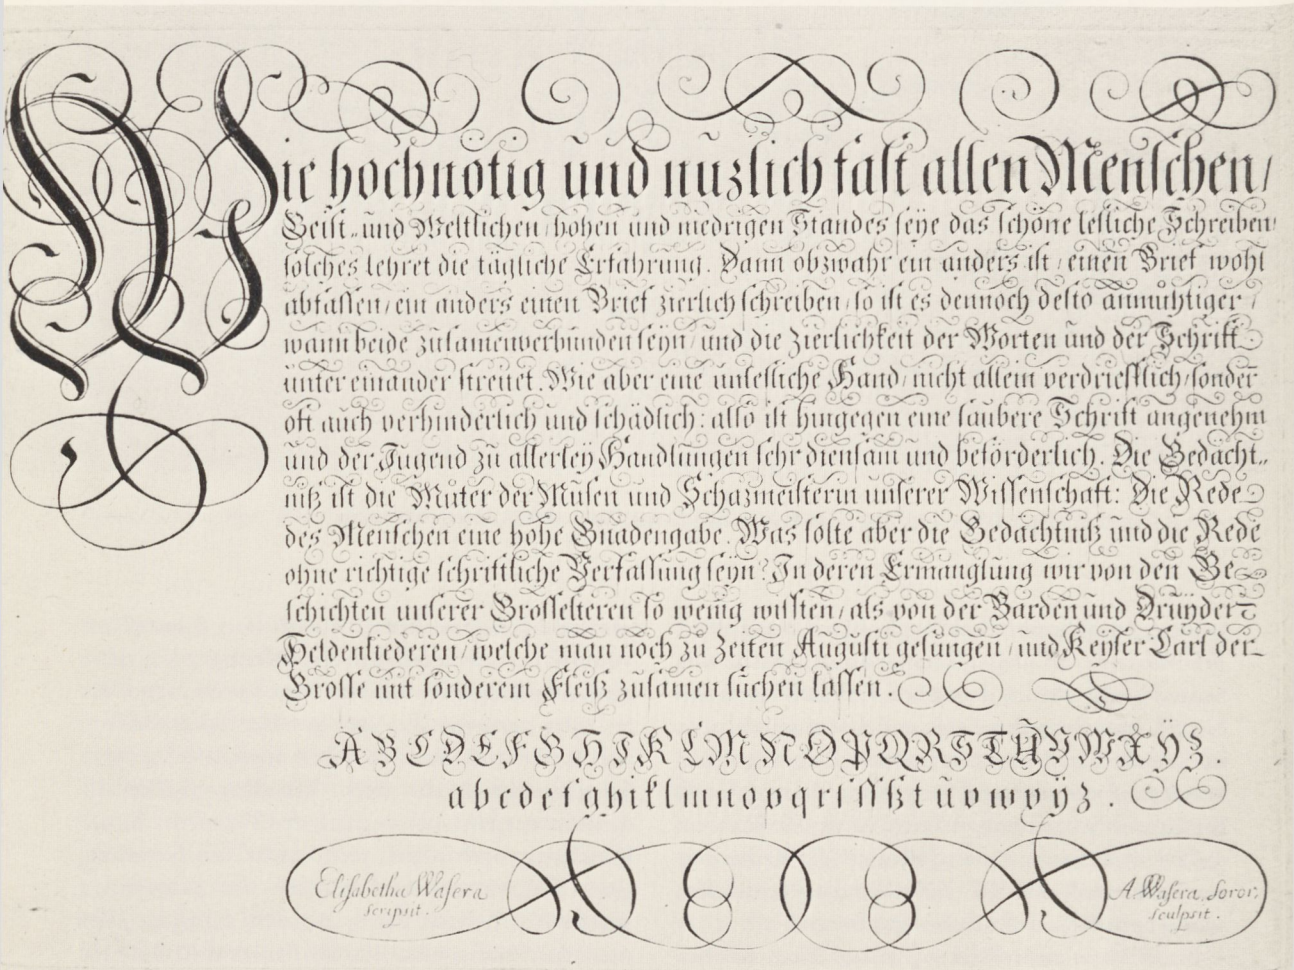 Wie hochnötig und nuzlich fast allen Menschen/
Geist- und Weltlichen/ hohen und niedrigen Standes seÿe das schöne lesliche Schreiben/
solches lehret die tägliche Erfahrung. Dann obzwahr ein anders ist/ einen Brief wohl
abfassen/ ein anders einen Brief zierlich schreiben/ so ist es dennoch desto anmuhtiger/
wann beide zusamenverbunden seÿn/ und die Zierlichkeit der Worten und der Schrift
unter einander streitet. Wie aber eine unlesliche Hand/ nicht allein verdriesslich/ sonder
oft auch verhinderlich und schädlich: also ist hingegen eine saubere Schrift angenehm
und der Jugend zu allerleÿ Handlungen sehr diensam und beförderlich. Die Gedächt-
niß ist die Muter der Musen und Schazmeisterin unserer Wissenschaft: Die Rede
des Menschen eine hohe Gnadengabe. Was solte aber die Gedächtniß und die Rede
ohne richtige schriftliche Verfassung seÿn? In deren Ermanglung wir von den Ge-
schichten unserer Grosselteren so wenig wissten/ als von der Barden und Druÿder
Heldenliederen/ welche man noch zu Zeiten Augusti gesungen/ und Keÿser Carl der
Grosse mit sonderem Fleiß zusamen suchen lassen.
A B C D E F G H I K L M N O P Q R S T U V W X Y Z .
a b c d e f g h i k l m n o p q r s ss ß t u v w x ÿ z .
Elisabetha Wasera
scripsit.
A. Wasera, Soror,
sculpsit.